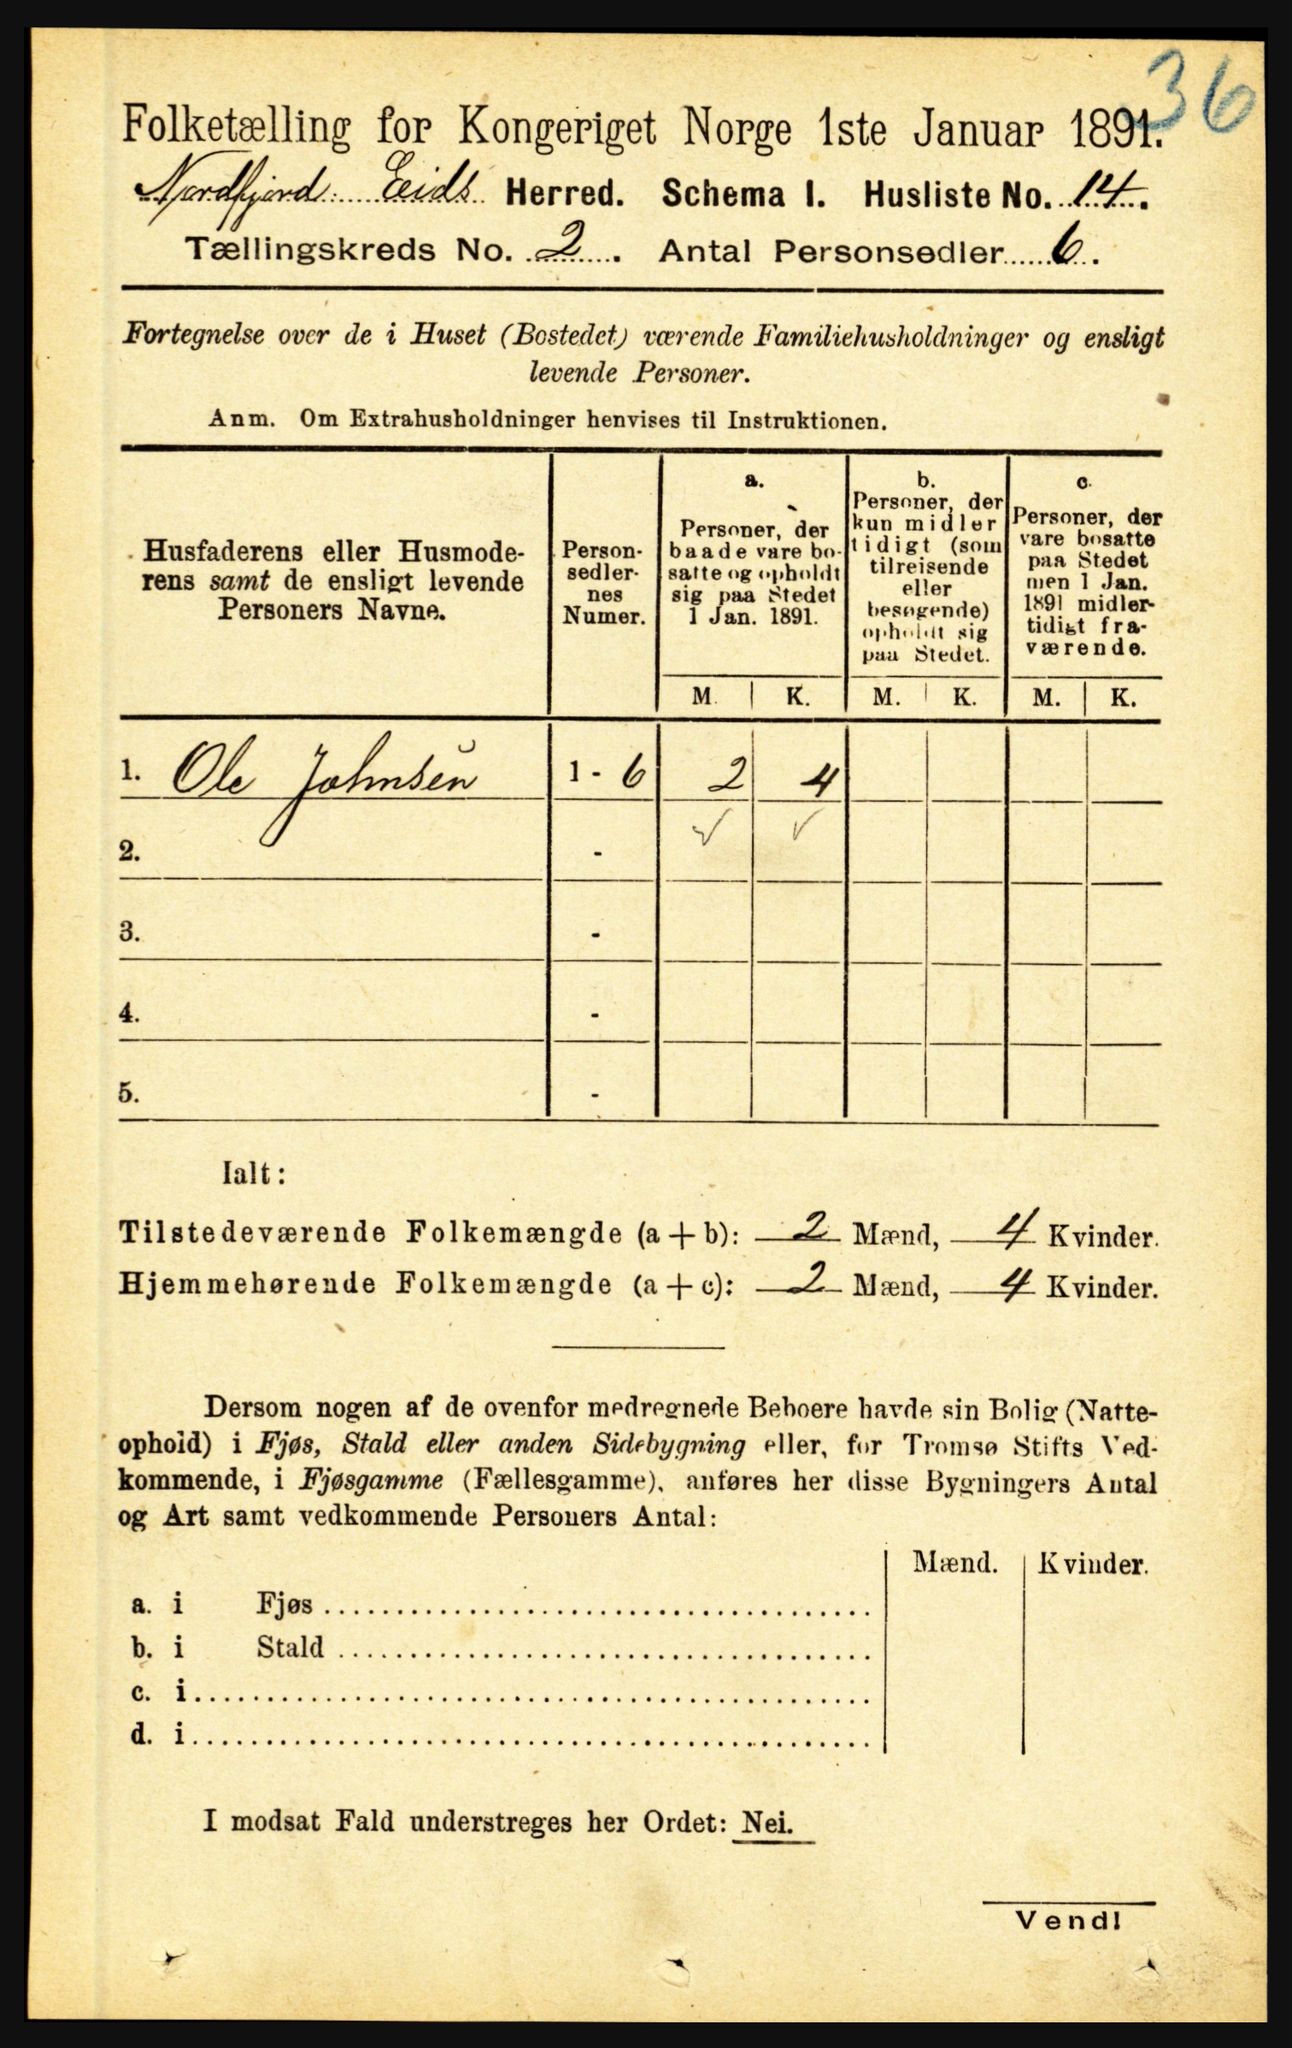 36
Folketælling for Kongeriget Norge 1ste Januar 1891.
Nordfjord Eids Herred. Schema I. Husliste No. 14.
Tællingskreds No. 2. Antal Personsedler 6.
Fortegnelse over de i Huset (Bostedet) værende Familiehusholdninger og ensligt
levende Personer.
Anm. Om Extrahusholdninger henvises til Instruktionen.
Husfaderens eller Husmode-
rens samt de ensligt levende
Personers Navne.
Person-
sedler-
nes
Numer.
a.
Personer, der
baade vare bo-
satte og opholdt
sig paa Stedet
1 Jan. 1891.
b.
Personer, der
kun midler
tidigt (som
tilreisende
eller
besøgende)
opholdt sig
paa Stedet.
c.
Personer, der
vare bosatte
paa Stedet
men 1 Jan.
1891 midler-
tidigt fra-
værende.
M. K. M. K. M. K.
1. Ole Johnsen 1 - 6 2 4
2. - ✓ ✓
3. -
4. -
5. -
Ialt:
Tilstedeværende Folkemængde (a + b): 2 Mænd, 4 Kvinder.
Hjemmehørende Folkemængde (a + c): 2 Mænd, 4 Kvinder.
Dersom nogen af de ovenfor medregnede Beboere havde sin Bolig (Natte-
ophold) i Fjøs, Stald eller anden Sidebygning eller, for Tromsø Stifts Ved-
kommende, i Fjøsgamme (Fællesgamme), anføres her disse Bygningers Antal
og Art samt vedkommende Personers Antal:
Mænd. Kvinder.
a. i Fjøs
b. i Stald
c. i
d. i
I modsat Fald understreges her Ordet: Nei.
Vend!